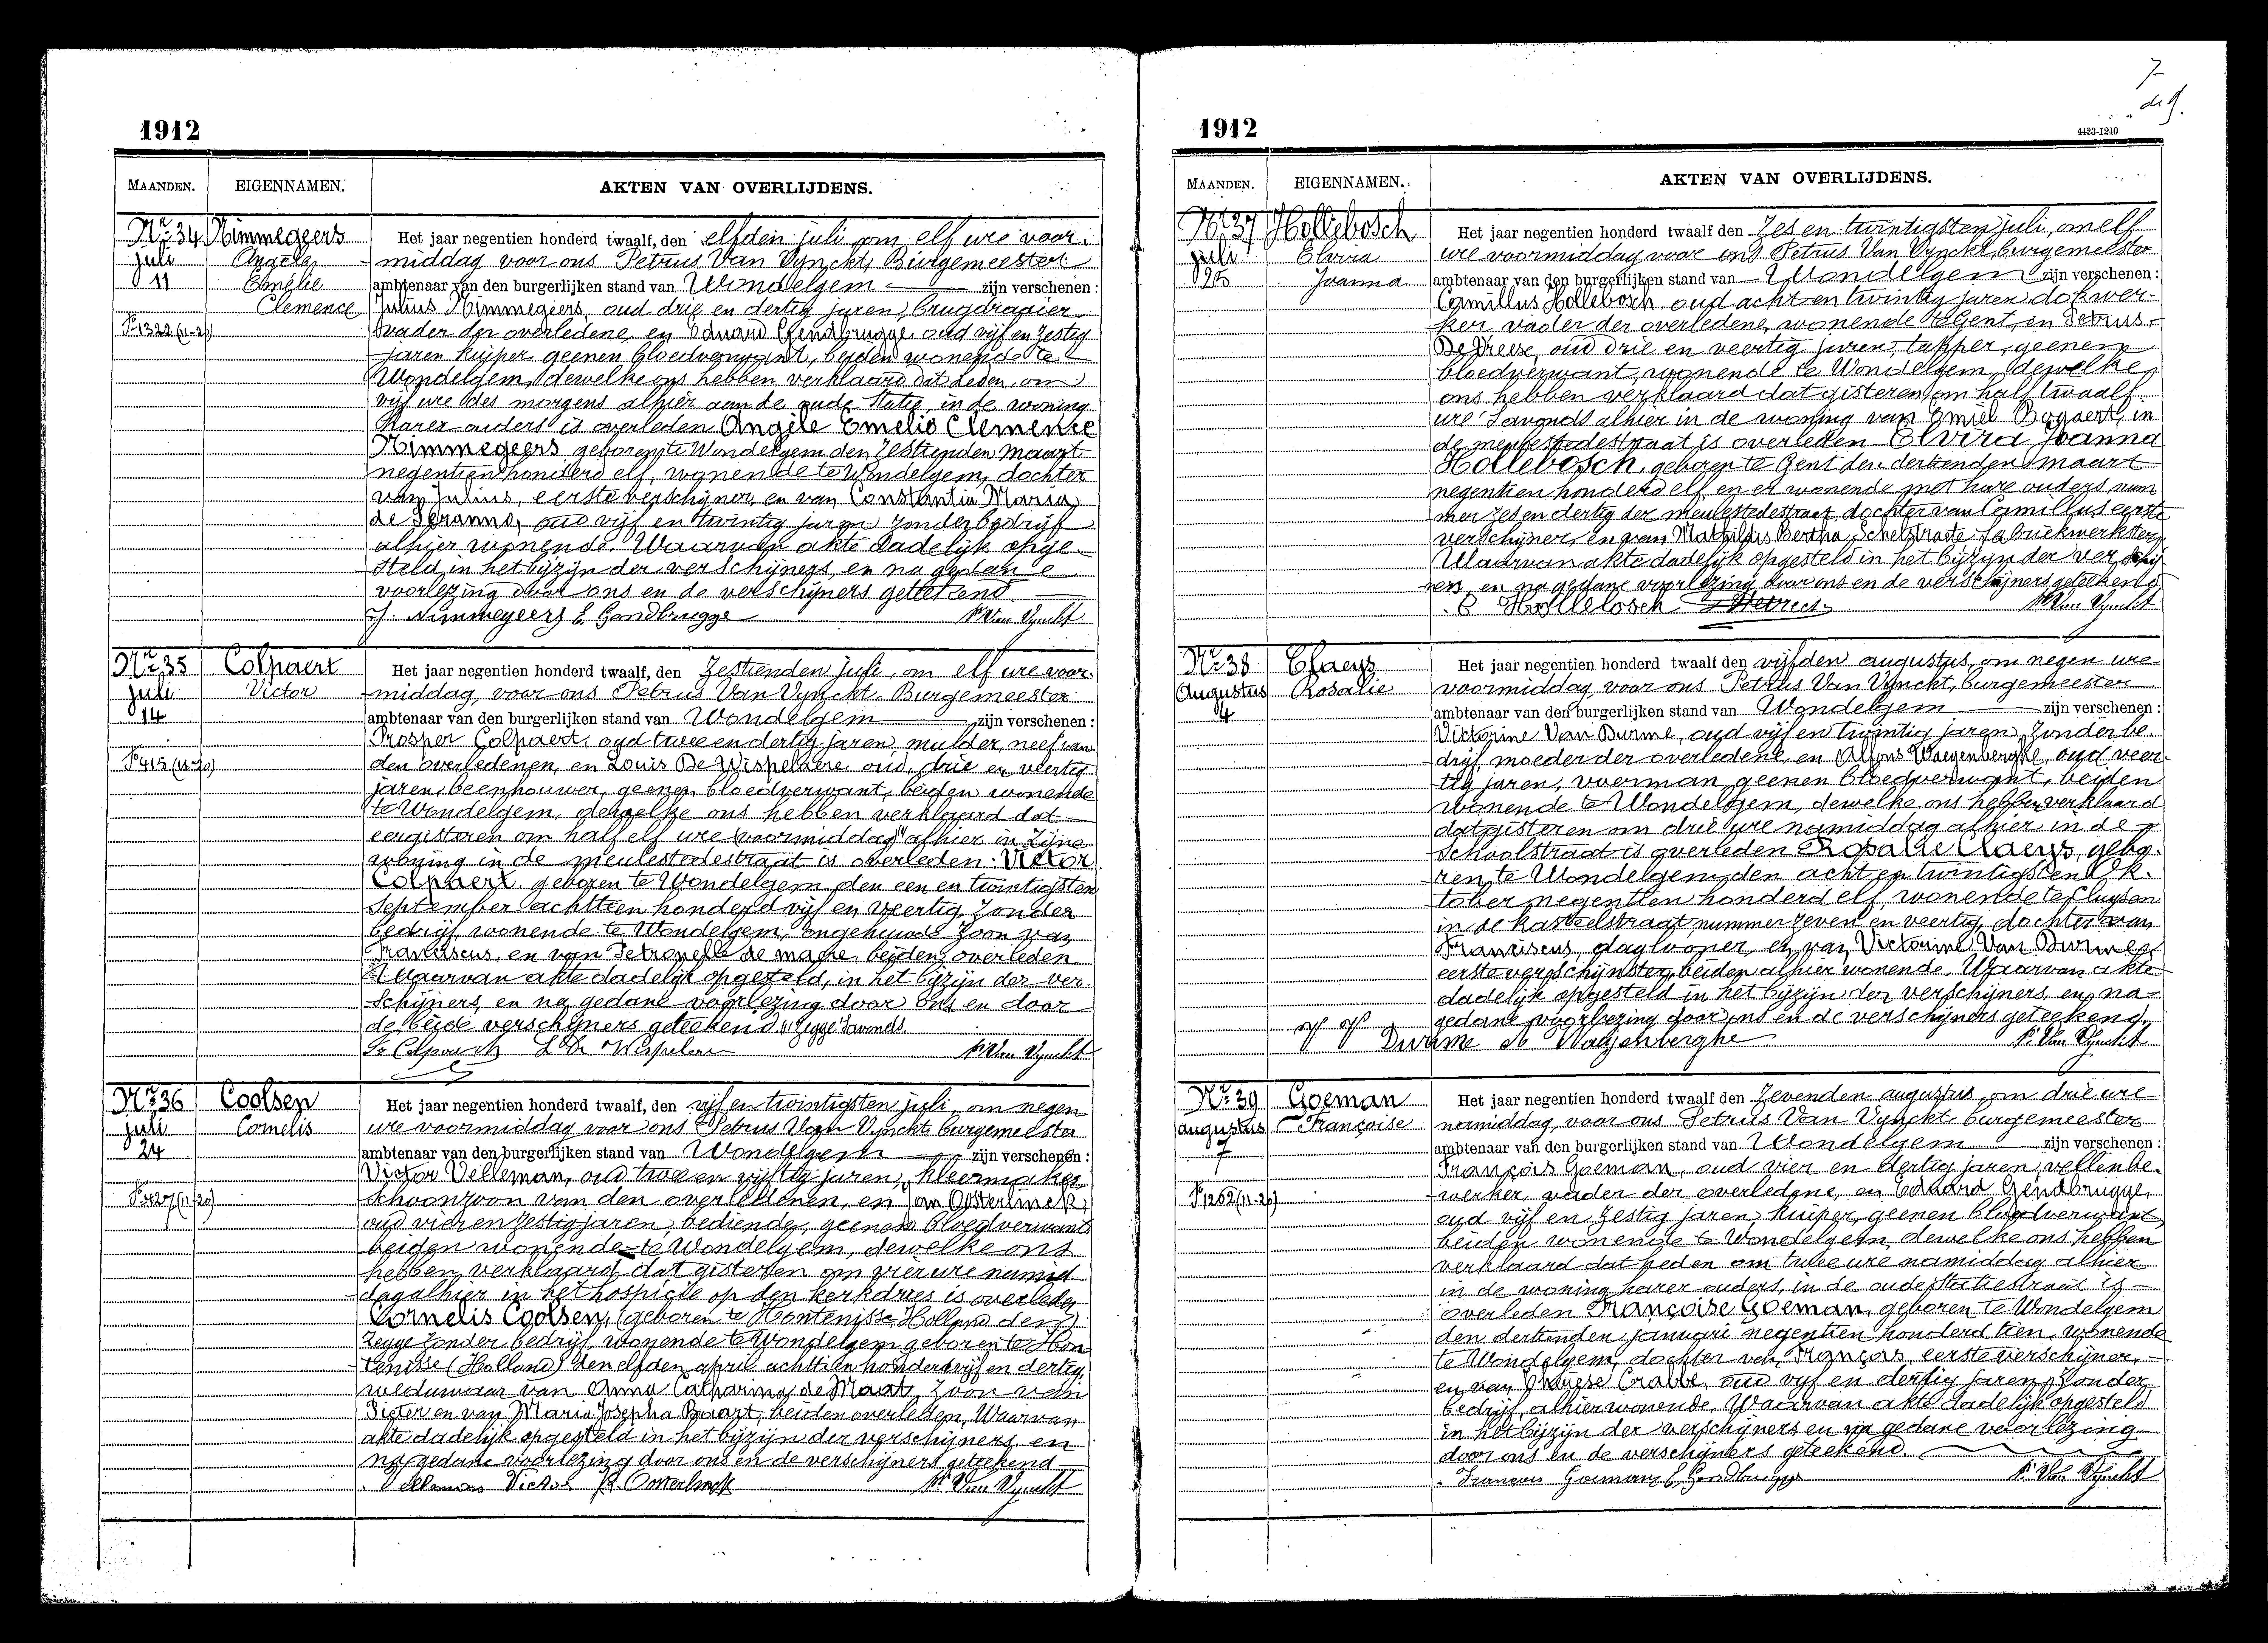 1912
MAANDEN. EIGENNAMEN. AKTEN VAN OVERLIJDENS.
Nr. 34 Nimmegeers Het jaar negentien honderd twaalf, den elfden juli om elf ure voor-
juli Angèle middag voor ons Petrus Van Vynckt, Burgemeester
11 Emélie ambtenaar van den burgerlijken stand van Wondelgem zijn verschenen:
Clemence Julius Nimmegeers, oud drie en dertig jaren, brugdraaier
vader der overledene, en Eduard Gendbrugge oud vijf en zestig
jaren kuiper geenen bloedverwant, beiden wonende te
Wondelgem, dewelke ons hebben verklaard dat heden om
vijf ure des morgens alhier aan de oude Statie, in de woning
harer ouders is overleden Angèle Emelie Clemence
Nimmegeers geboren te Wondelgem den zestienden maart
negentien honderd elf, wonende te Wondelgem, dochter
van Julius, eerste verschijner, en van Constantia Maria
de oud vijf en twintig jaren zonder bedrijf
alhier wonende. Waarvan akte dadelijk opge-
steld in het bijzijn der verschijners, en na gedane
voorlezing door ons en de verschijners geteekend
J. Nimmegeers E. Gendbrugge P. Van Vynckt
Nr. 35 Colpaert Het jaar negentien honderd twaalf, den Zestienden juli, om elf ure voor
juli Victor middag, voor ons Petrus Van Vynckt, Burgemeester
14 ambtenaar van den burgerlijken stand van Wondelgem zijn verschenen:
Prosper Colpaert, oud twee en dertig jaren, mulder, neef van
den overledenen, en Louis De Wispelaere oud, drie en veertig
jaren, beenhouwer, geenen bloedverwant, beiden wonende
te Wondelgem, dewelke ons hebben verklaard dat
eergisteren om half elf ure voormiddag alhier in zijne
woning in de meulestedestraat is overleden: Victor
Colpaert, geboren te Wondelgem den een en twintigsten
September achttien honderd vijf en veertig, zonder
bedrijf, wonende te Wondelgem, ongehuwde zoon van
Franciscus, en van Petronelle de beiden overleden
Waarvan akte dadelijk opgesteld, in het bijzijn der ver-
schijners, en na gedane voorlezing door ons en door
de beide verschijners geteekend (1) zegge savonds
Pr Colpaert L De Wispelaere P. Van Vynckt
Nr. 36 Coolsen Het jaar negentien honderd twaalf, den vijf en twintigsten juli, om negen
juli Cornelis ure voormiddag voor ons Petrus Van Vynckt, burgemeester
24 ambtenaar van den burgerlijken stand van Wondelgem zijn verschenen:
Victor Velleman, oud twee en vijftig jaren, kleermaker
schoonzoon van den overledenen, en Jan Oosterlinck,
oud vier en zestig jaren, bediende, geenen bloedverwant
beiden wonende te Wondelgem, dewelke ons
hebben verklaard dat gisteren om vier ure namid
dag alhier in het hospicie op den kerkdries is overleden
Cornelis Coolsen, (geboren te Hontenisse Holland den)
zegge zonder bedrijf, wonende te Wondelgem geboren te Hon
tenisse (Holland) den elfden april achttien honderd vijf en dertig,
weduwaar van Anna Catharina de Maat, zoon van
Pieter en van Maria Josepha Buart, beiden overleden, Waarvan
akte dadelijk opgesteld in het bijzijn der verschijners, en
na gedane voorlezing door ons en de verschijners geteekend
Velleman Victor P. Van Vynckt
7
1912 4423-1240
MAANDEN. EIGENNAMEN. AKTEN VAN OVERLIJDENS.
Nr. 37 Hollebosch Het jaar negentien honderd twaalf den Zes en twintigsten juli, om elf
juli Elvira ure voormiddag voor ons Petrus Van Vynckt, burgemeester
25 Joanna ambtenaar van den burgerlijken stand van Wondelgem zijn verschenen:
Camillus Hollebosch, oud acht en twintig jaren dokwer-
ker, vader der overledene, wonende te Gent, en Petrus
oud drie en veertig jaren, tapper, geenen
bloedverwant, wonende te Wondelgem, dewelke
ons hebben verklaard dat gisteren om half twaalf
ure 'savonds alhier in de woning van Emiel Bogaert, in
de meulestedestraat is overleden Elvira Joanna
Hollebosch, geboren te Gent den dertienden maart
negentien honderd elf, en er wonende met hare ouders num
mer zes en dertig der meulestedestraat, dochter van Camillus eerste
verschijner, en van Mathildis Bertha Schelstraete fabriekwerkster
Waarvan akte dadelijk opgesteld in het bijzijn der verschij
ners, en na gedane voorlezing door ons en de verschijners geteekend
C Hollebosch P. Van Vynckt
Nr. 38 Claeys Het jaar negentien honderd twaalf den vijfden augustus, om negen ure
Augustus Rosalie voormiddag voor ons Petrus Van Vynckt, burgemeester
4 ambtenaar van den burgerlijken stand van Wondelgem zijn verschenen:
Victorine Van Durme, oud vijf en twintig jaren, zonder be-
drijf moeder der overledene, en Alfons Waegenberghe, oud veer
tig jaren, voerman, geenen bloedverwant, beiden
wonende te Wondelgem, dewelke ons hebben verklaard
dat gisteren om drie ure namiddag alhier in de
Schoolstraat is overleden Rosalie Claeys, gebo-
ren te Wondelgem, den acht en twintigsten Ok-
tober negentien honderd elf, wonende te Cluysen
in de Kasteelstraat, nummer zeven en veertig, dochter van
Franciscus, daglooner, en van Victorine Van Durme
eerste verschijnster, beiden alhier wonende. Waarvan akte
dadelijk opgesteld in het bijzijn der verschijners, en na
gedane voorlezing door ons en de verschijners geteekend.
Durme A Wagenberghe P. Van Vynckt
Nr. 39 Goeman Het jaar negentien honderd twaalf den Zevenden augustus, om drie ure
augustus Françoise namiddag, voor ons Petrus Van Vynckt, burgemeester
7 ambtenaar van den burgerlijken stand van Wondelgem zijn verschenen:
François Goeman, oud vier en dertig jaren, vellenbe-
werker, vader der overledene, en Eduard Gendbrugge,
oud vijf en zestig jaren, kuiper, geenen bloedverwant,
beiden wonende te Wondelgem, dewelke ons hebben
verklaard dat heden om twee ure namiddag alhier
in de woning harer ouders, in de oude Statiestraat is
overleden Françoise Goeman, geboren te Wondelgem
den dertienden januari negentien honderd tien, wonende
te Wondelgem, dochter van François, eerste verschijner,
en van Crabbe, oud vijf en dertig jaren, zonder
bedrijf, alhier wonende. Waarvan akte dadelijk opgesteld
in het bijzijn der verschijners en na gedane voorlezing
door ons en de verschijners geteekend.
François Goeman E. Gendbrugge P. Van Vynckt